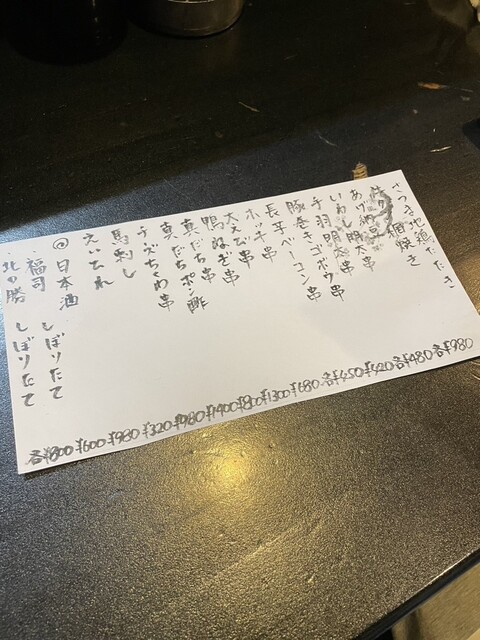 さつま地鶏たたき
酒焼き
あげ納豆
いわし明太串
手羽明太串
豚巻キゴボウ串
長芋ベーコン串
ホッキ串
大えび串
鴨ねぎ串
真だちポン酢
真だち串
チーズちくわ串
馬刺し
えいひれ
@ 日本酒
・福司 しぼりたて
・北の勝 しぼりたて
各¥980
各¥480
¥420
各¥450
¥680
¥1300
¥800
¥1400
¥980
¥320
¥980
¥600
各¥800